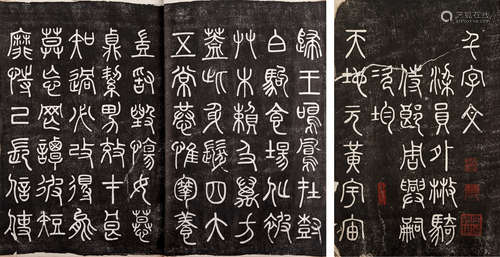 千字文
梁員外散騎
侍郎周興嗣
次均
天地元黃宇宙
歸王鳴鳳在尌
白駒食場化被
艸木賴及萬方
蓋此身髮四大
五常恭惟鞠養
豈敢毀傷女慕
貞絜男效才良
知過必改得能
莫忘罔談彼短
靡恃己長信使